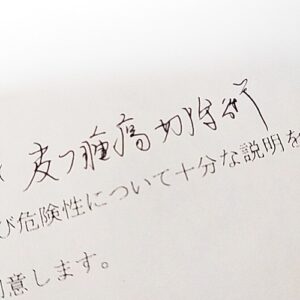 皮フ腫瘍切除術
び危険性について十分な説明を
同意します。